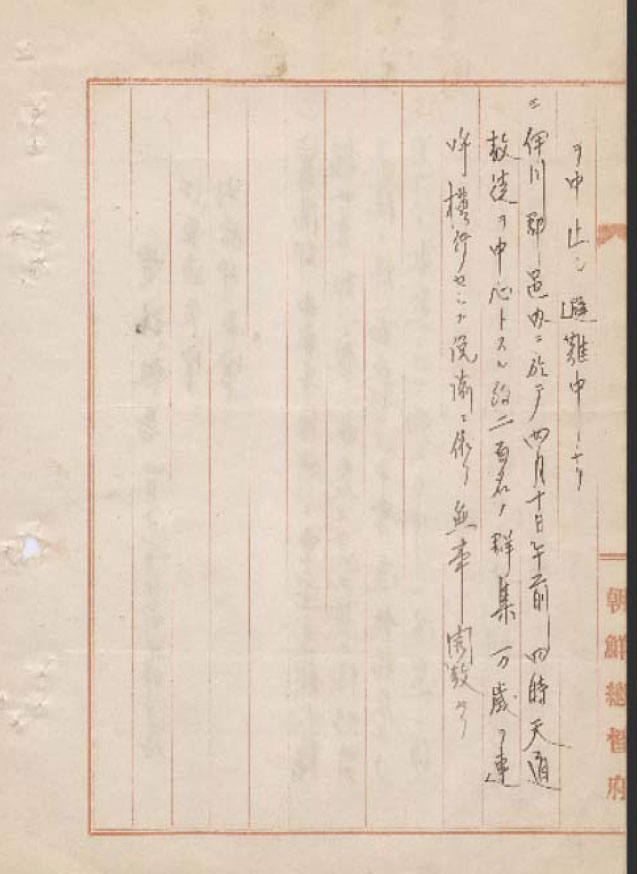 ヲ中止シ避難中ナリ
ニ伊川郡邑内ニ於テ四月十日午前四時天道
教徒ヲ中心トスル約二百名ノ群集万歳ヲ連
呼横行セシカ説諭ニ依リ無事解散セリ
朝鮮總督府